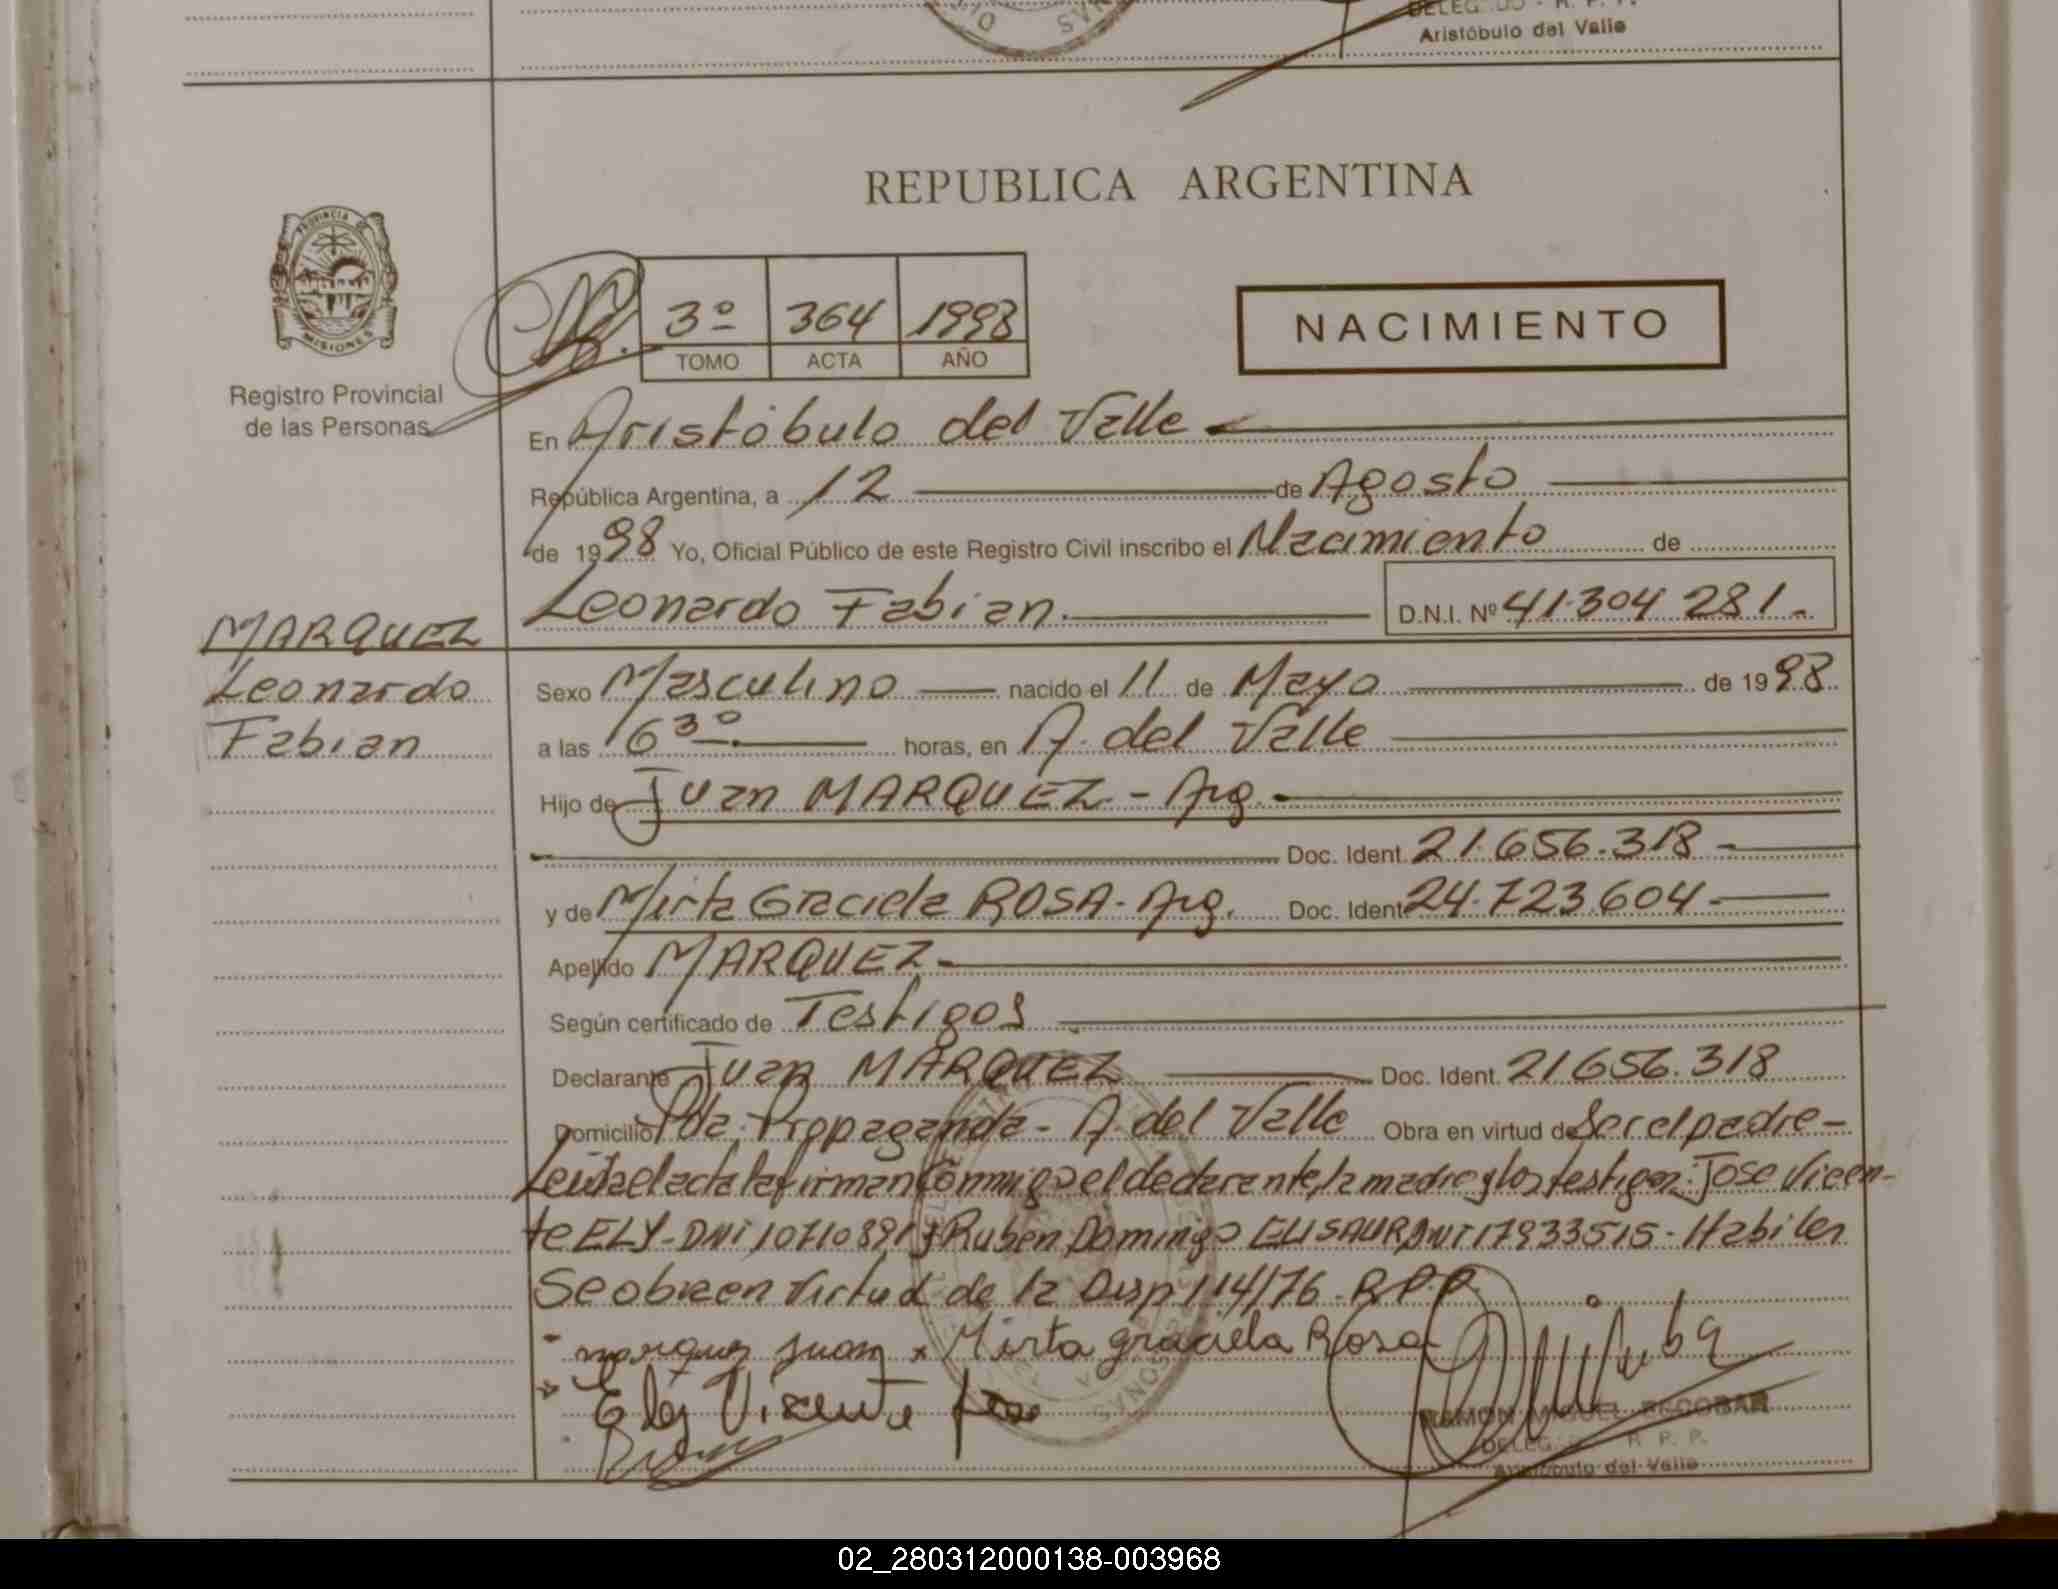 DELEG DO - R. P. P.
Aristóbulo del Valle
REPUBLICA ARGENTINA
PROVINCIA DE
MISIONES
Registro Provincial
de las Personas
3º 364 1998
TOMO ACTA AÑO
NACIMIENTO
En Aristóbulo del Valle
República Argentina, a 12 de Agosto
de 1998 Yo, Oficial Público de este Registro Civil inscribo el Nacimiento de
Leonardo Fabian. D.N.I. Nº 41.304 281.-
MARQUEZ
Leonardo
Fabian
Sexo Masculino nacido el 11 de Mayo de 1998
a las 16 30 horas, en A. del Valle
Hijo de Juan MARQUEZ - Arg.
Doc. Ident. 21.656.318 -
y de Mirta Graciela ROSA - Arg. Doc. Ident. 24.723.604 -
Apellido MARQUEZ -
Según certificado de Testigos
Declarante Juan MARQUEZ Doc. Ident. 21656.318
Domicilio Pda. Propaganda - A. del Valle Obra en virtud de Ser el padre -
Leída el acta la firman conmigo el declarante, la madre y los testigos: Jose Vicen-
te ELY - DNI 10710891 y Ruben Domingo ELISAUR DNI 17933515 - Habiles
Se obra en virtud de la Disp 114/76 - R.P.P.
- marquez juan x Mirta graciela Rosa
Eloy Vicente Jose
RAMON MIGUEL ESCOBAR
DELEG. R. P. P.
Aristóbulo del Valle
02_280312000138-003968